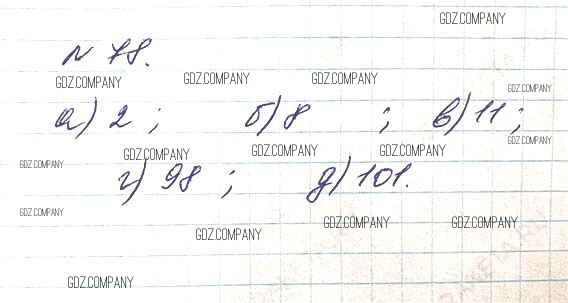 GDZ.COMPANY
№ 78.
GDZ.COMPANY GDZ.COMPANY GDZ.COMPANY GDZ.COMPANY
а) 2 ; б) 8 ; в) 11 ;
GDZ.COMPANY GDZ.COMPANY GDZ.COMPANY GDZ.COMPANY GDZ.COMPANY
г) 98 ; д) 101.
GDZ.COMPANY GDZ.COMPANY GDZ.COMPANY GDZ.COMPANY
GDZ.COMPANY